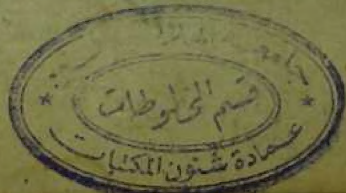 جامعة
قسم المخطوطات
عمادة شئون المكتبات